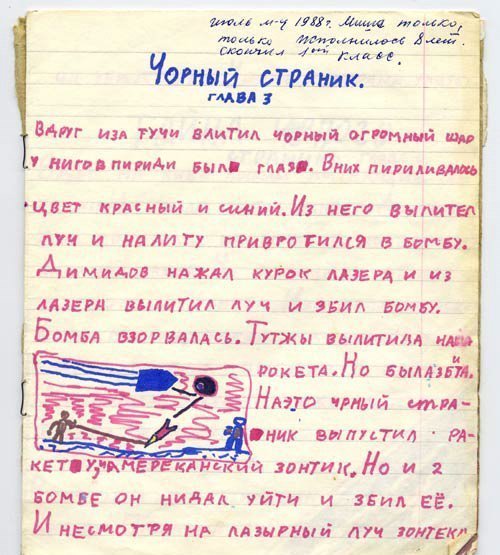 июль м-ц 1988г. Миша только,
только исполнилось 8 лет.
скончил 1ый класс.
ЧОРНЫЙ СТРАНИК.
ГЛАВА 3
ВДРУГ ИЗА ТУЧИ ВЛИТИЛ ЧОРНЫЙ ОГРОМНЫЙ ШАР
У НИГО ВПИРИДИ БЫЛО ГЛАЗО. ВНИХ ПИРИЛИВАЛОСЬ
ЦВЕТ КРАСНЫЙ И СИНИЙ. ИЗ НЕГО ВЫЛИТЕЛ
ЛУЧ И НАЛИТУ ПРИВРОТИЛСЯ В БОМБУ.
ДИМИДОВ НАЖАЛ КУРОК ЛАЗЕРА И ИЗ
ЛАЗЕРА ВЫЛИТИЛ ЛУЧ И ЗБИЛ БОМБУ.
БОМБА ВЗОРВАЛАСЬ. ТУТЖЫ ВЫЛИТИЛА НАША
РОКЕТА. НО БЫЛАЗБИТА.
НАЭТО ЧРНЫЙ СТРА-
НИК ВЫПУСТИЛ РА-
КЕТУ, ЧАМЕРЕКАНСКИЙ ЗОНТИК. НО И 2
БОМБЕ ОН НИДАЛ УЙТИ И ЗБИЛ ЕЁ.
И НЕСМОТРЯ НА ЛАЗЫРНЫЙ ЛУЧ ЗОНТЕКА